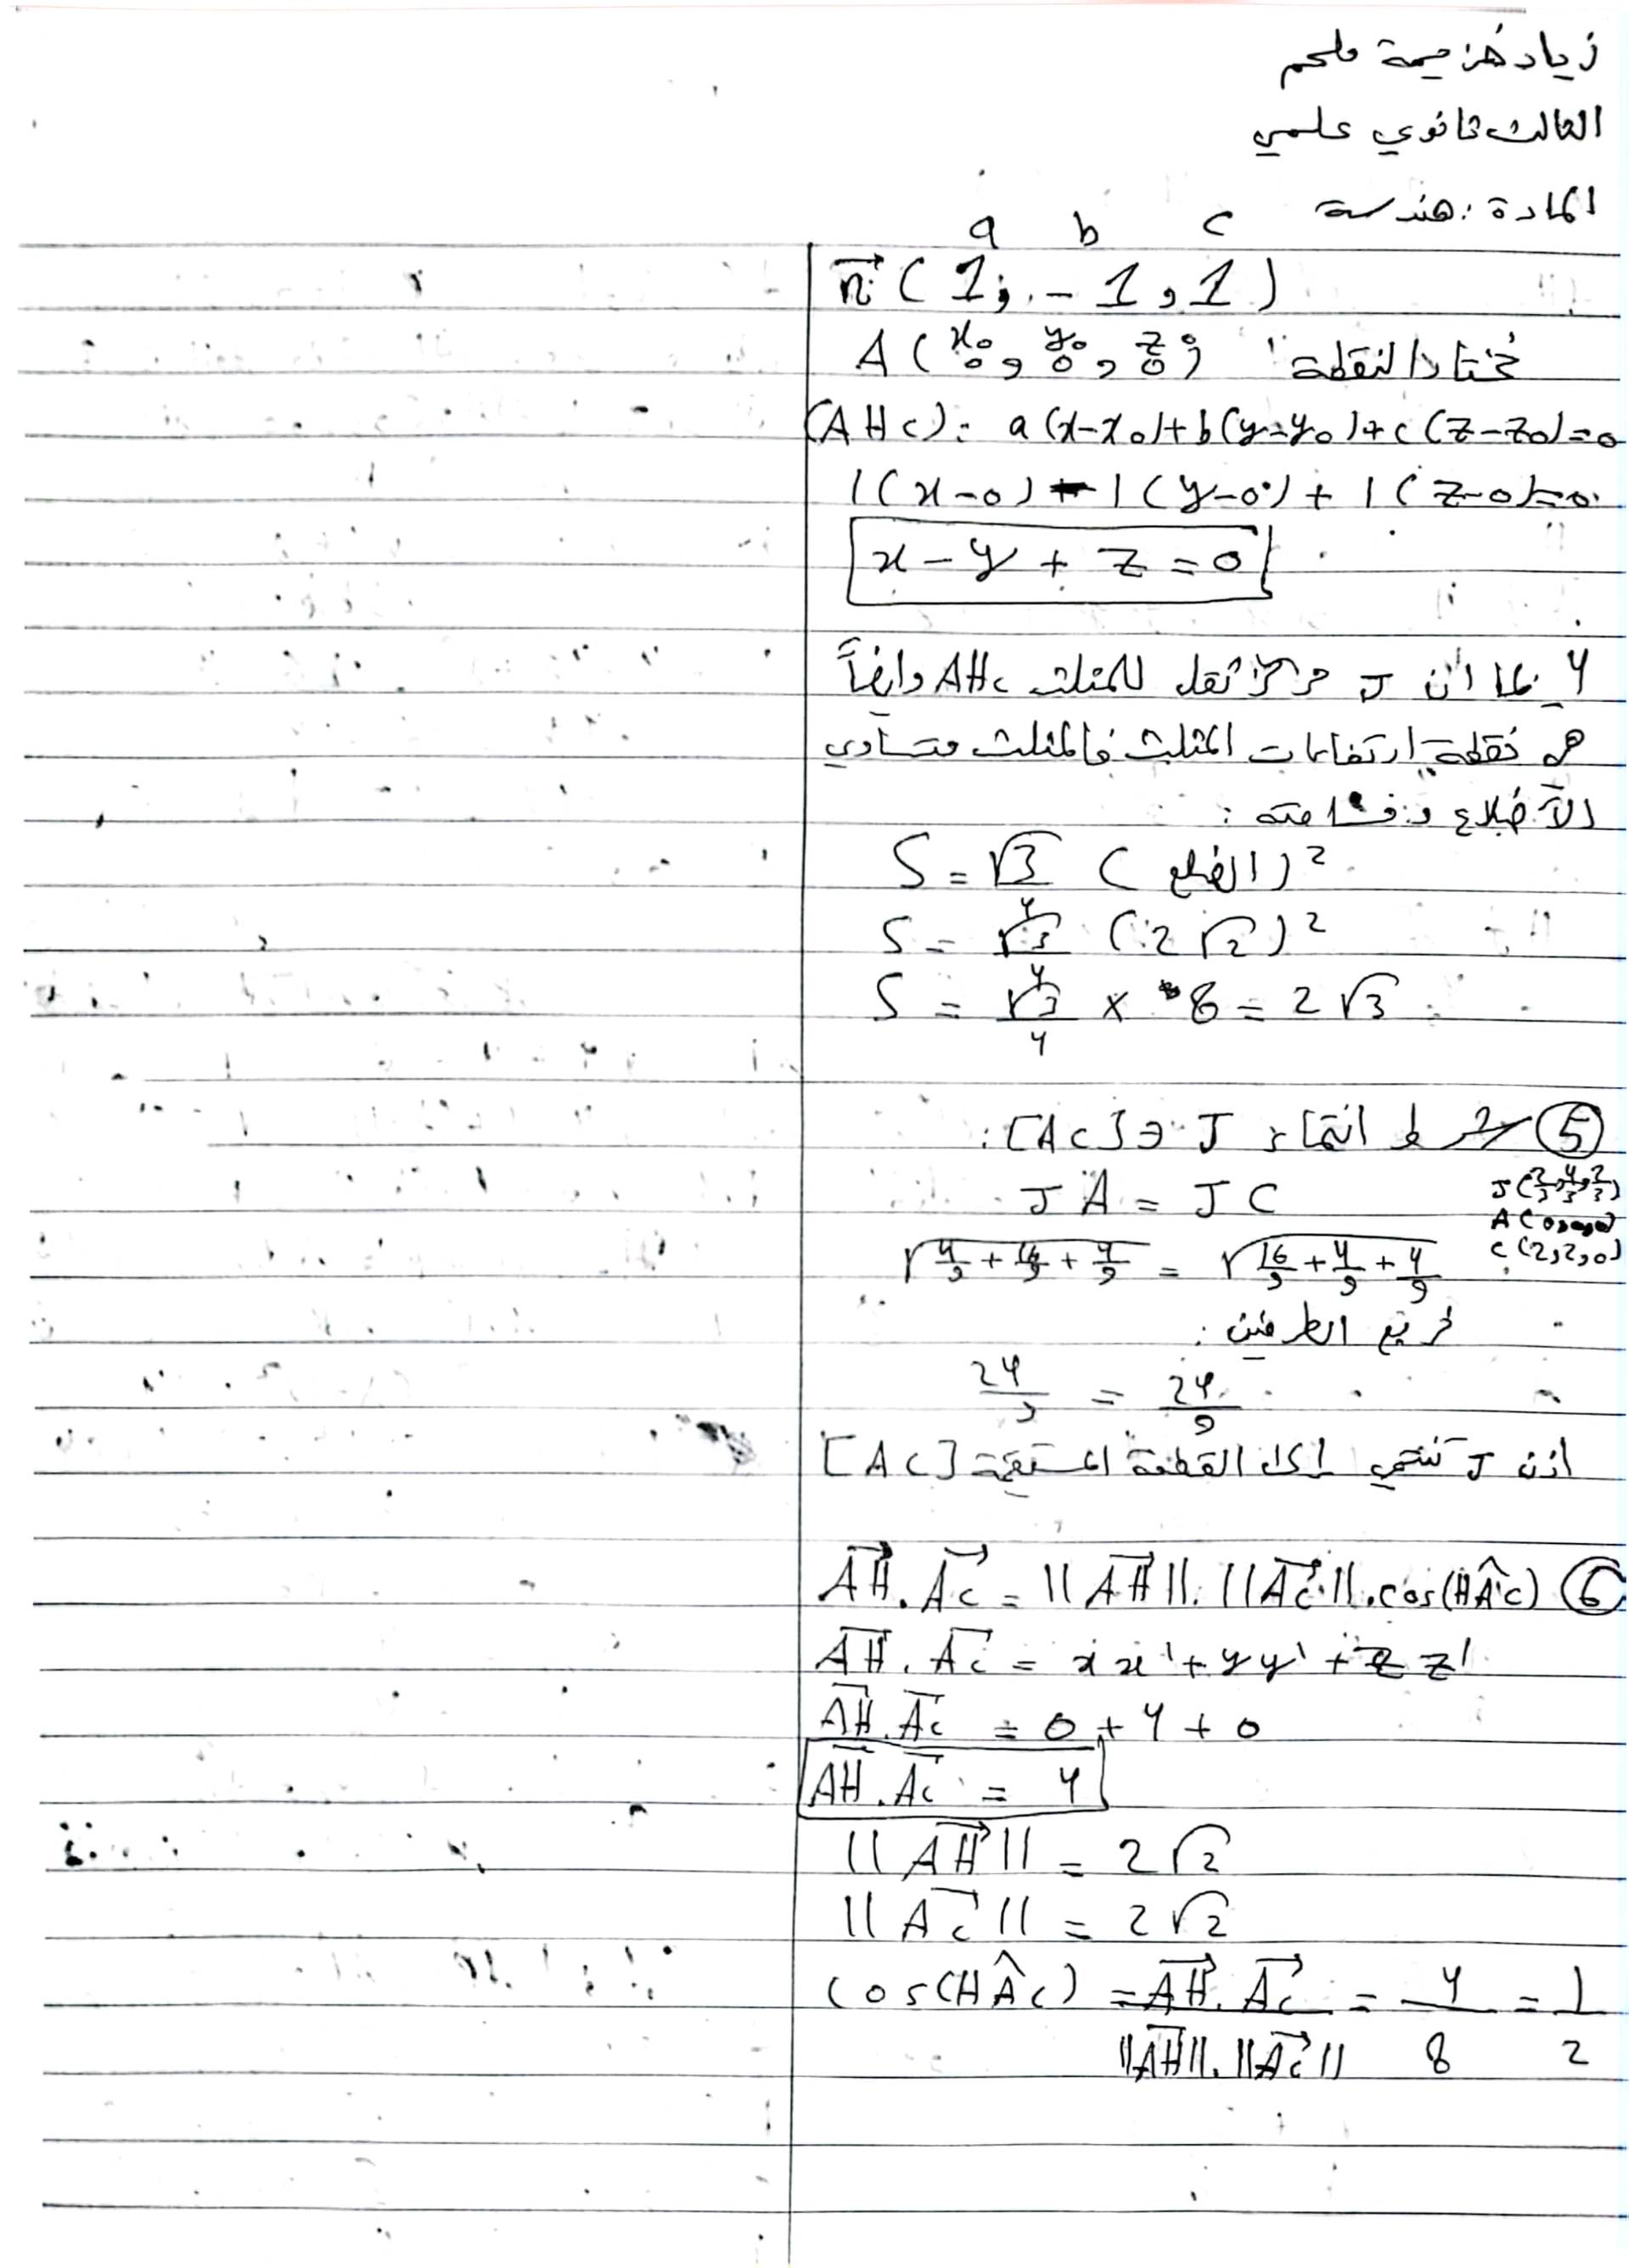 زياد هزيمة ملحم
الثالث ثانوي علمي
المادة : هندسة
a b c
n⃗ ( 1 , - 1 , 1 )
A ( 0 , 0 , 0 ) نختار النقطة
x₀ y₀ z₀
(AHC) : a(x-x₀)+b(y-y₀)+c(z-z₀)=0
1(x-0) - 1(y-0) + 1(z-0)=0
x - y + z = 0
4 بما أن J مركز ثقل للمثلث AHC وايضاً
هي نقطة ارتفاعات المثلث فالمثلث متساوي
الأضلاع ومساحته :
S = √3/4 ( الضلع )²
S = √3/4 ( 2√2 )²
S = √3/4 × 8 = 2√3
⑤ شرط انتماء J ∈ [AC] :
JA = JC
J(2/3, 4/3, 2/3)
A(0,0,0)
C(2,2,0)
√(4/9 + 16/9 + 4/9) = √(16/9 + 4/9 + 4/9)
نربع الطرفين :
24/9 = 24/9
اذن J تنتمي إلى القطعة المستقيمة [AC]
⑥ AH⃗ . AC⃗ = ||AH⃗|| . ||AC⃗|| . cos(HÂC)
AH⃗ . AC⃗ = xx' + yy' + zz'
AH⃗ . AC⃗ = 0 + 4 + 0
AH⃗ . AC⃗ = 4
||AH⃗|| = 2√2
||AC⃗|| = 2√2
cos(HÂC) = AH⃗ . AC⃗ / ||AH⃗|| . ||AC⃗|| = 4/8 = 1/2